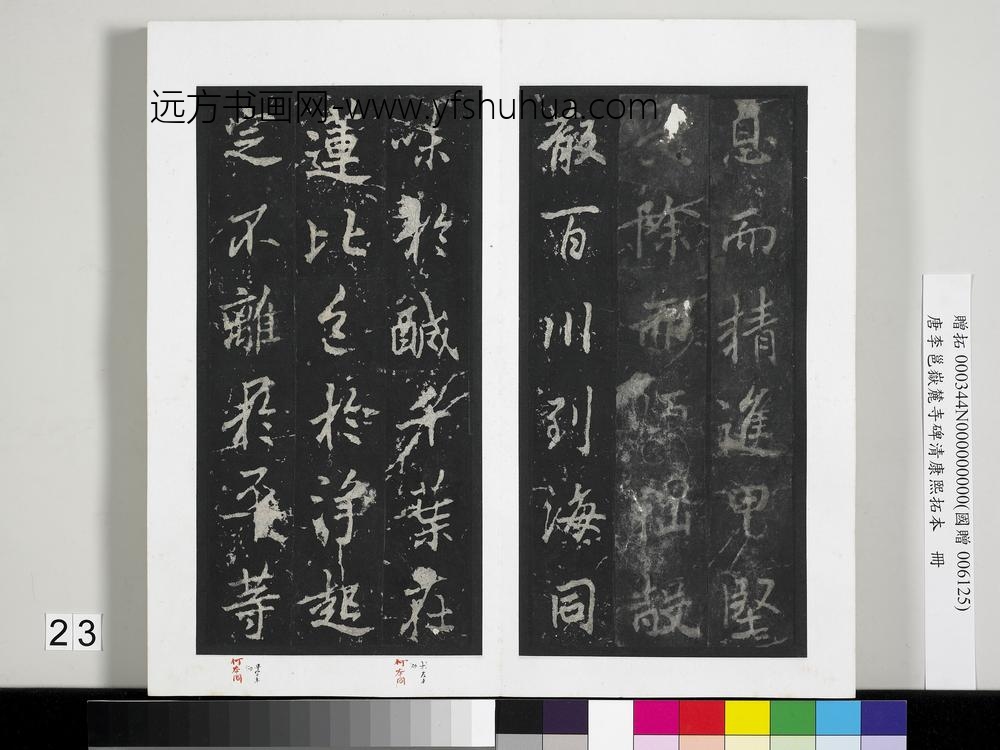 远方书画网-www.yfshuhua.com
息而精進甲堅
除
散百川到海同
味於鹹千葉在
蓮比色於淨起
定不離於平等
23
贈拓 000344N000000000(國贈 006125)
唐李邕嶽麓寺碑清康熙拓本 冊